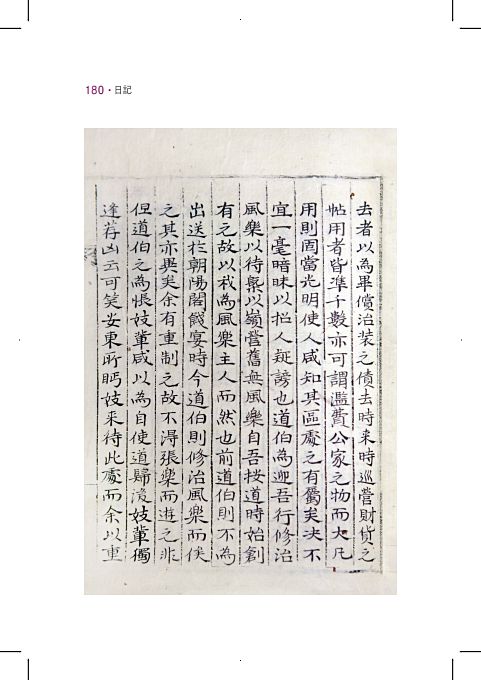 180 · 日記
去者以為畢償治装之債去時来時巡營財貨之
帖用者皆準千數亦可謂濫費公家之物而大凡
用則固當光明使人咸知其區處之有屬矣决不
宜一毫暗昧以招人疑謗也道伯為迎吾行修治
風樂以待槩以嶺營舊無風樂自吾按道時始創
有之故以我為風樂主人而然也前道伯則不為
出送於朝陽閣餞宴時今道伯則修治風樂而俟
之其亦異矣余有重制之故不淂張樂而遊之非
但道伯之為悵妓軰咸以為自使道歸後妓軰獨
逢荐凶云可笑安東所眄妓来待此處而余以重